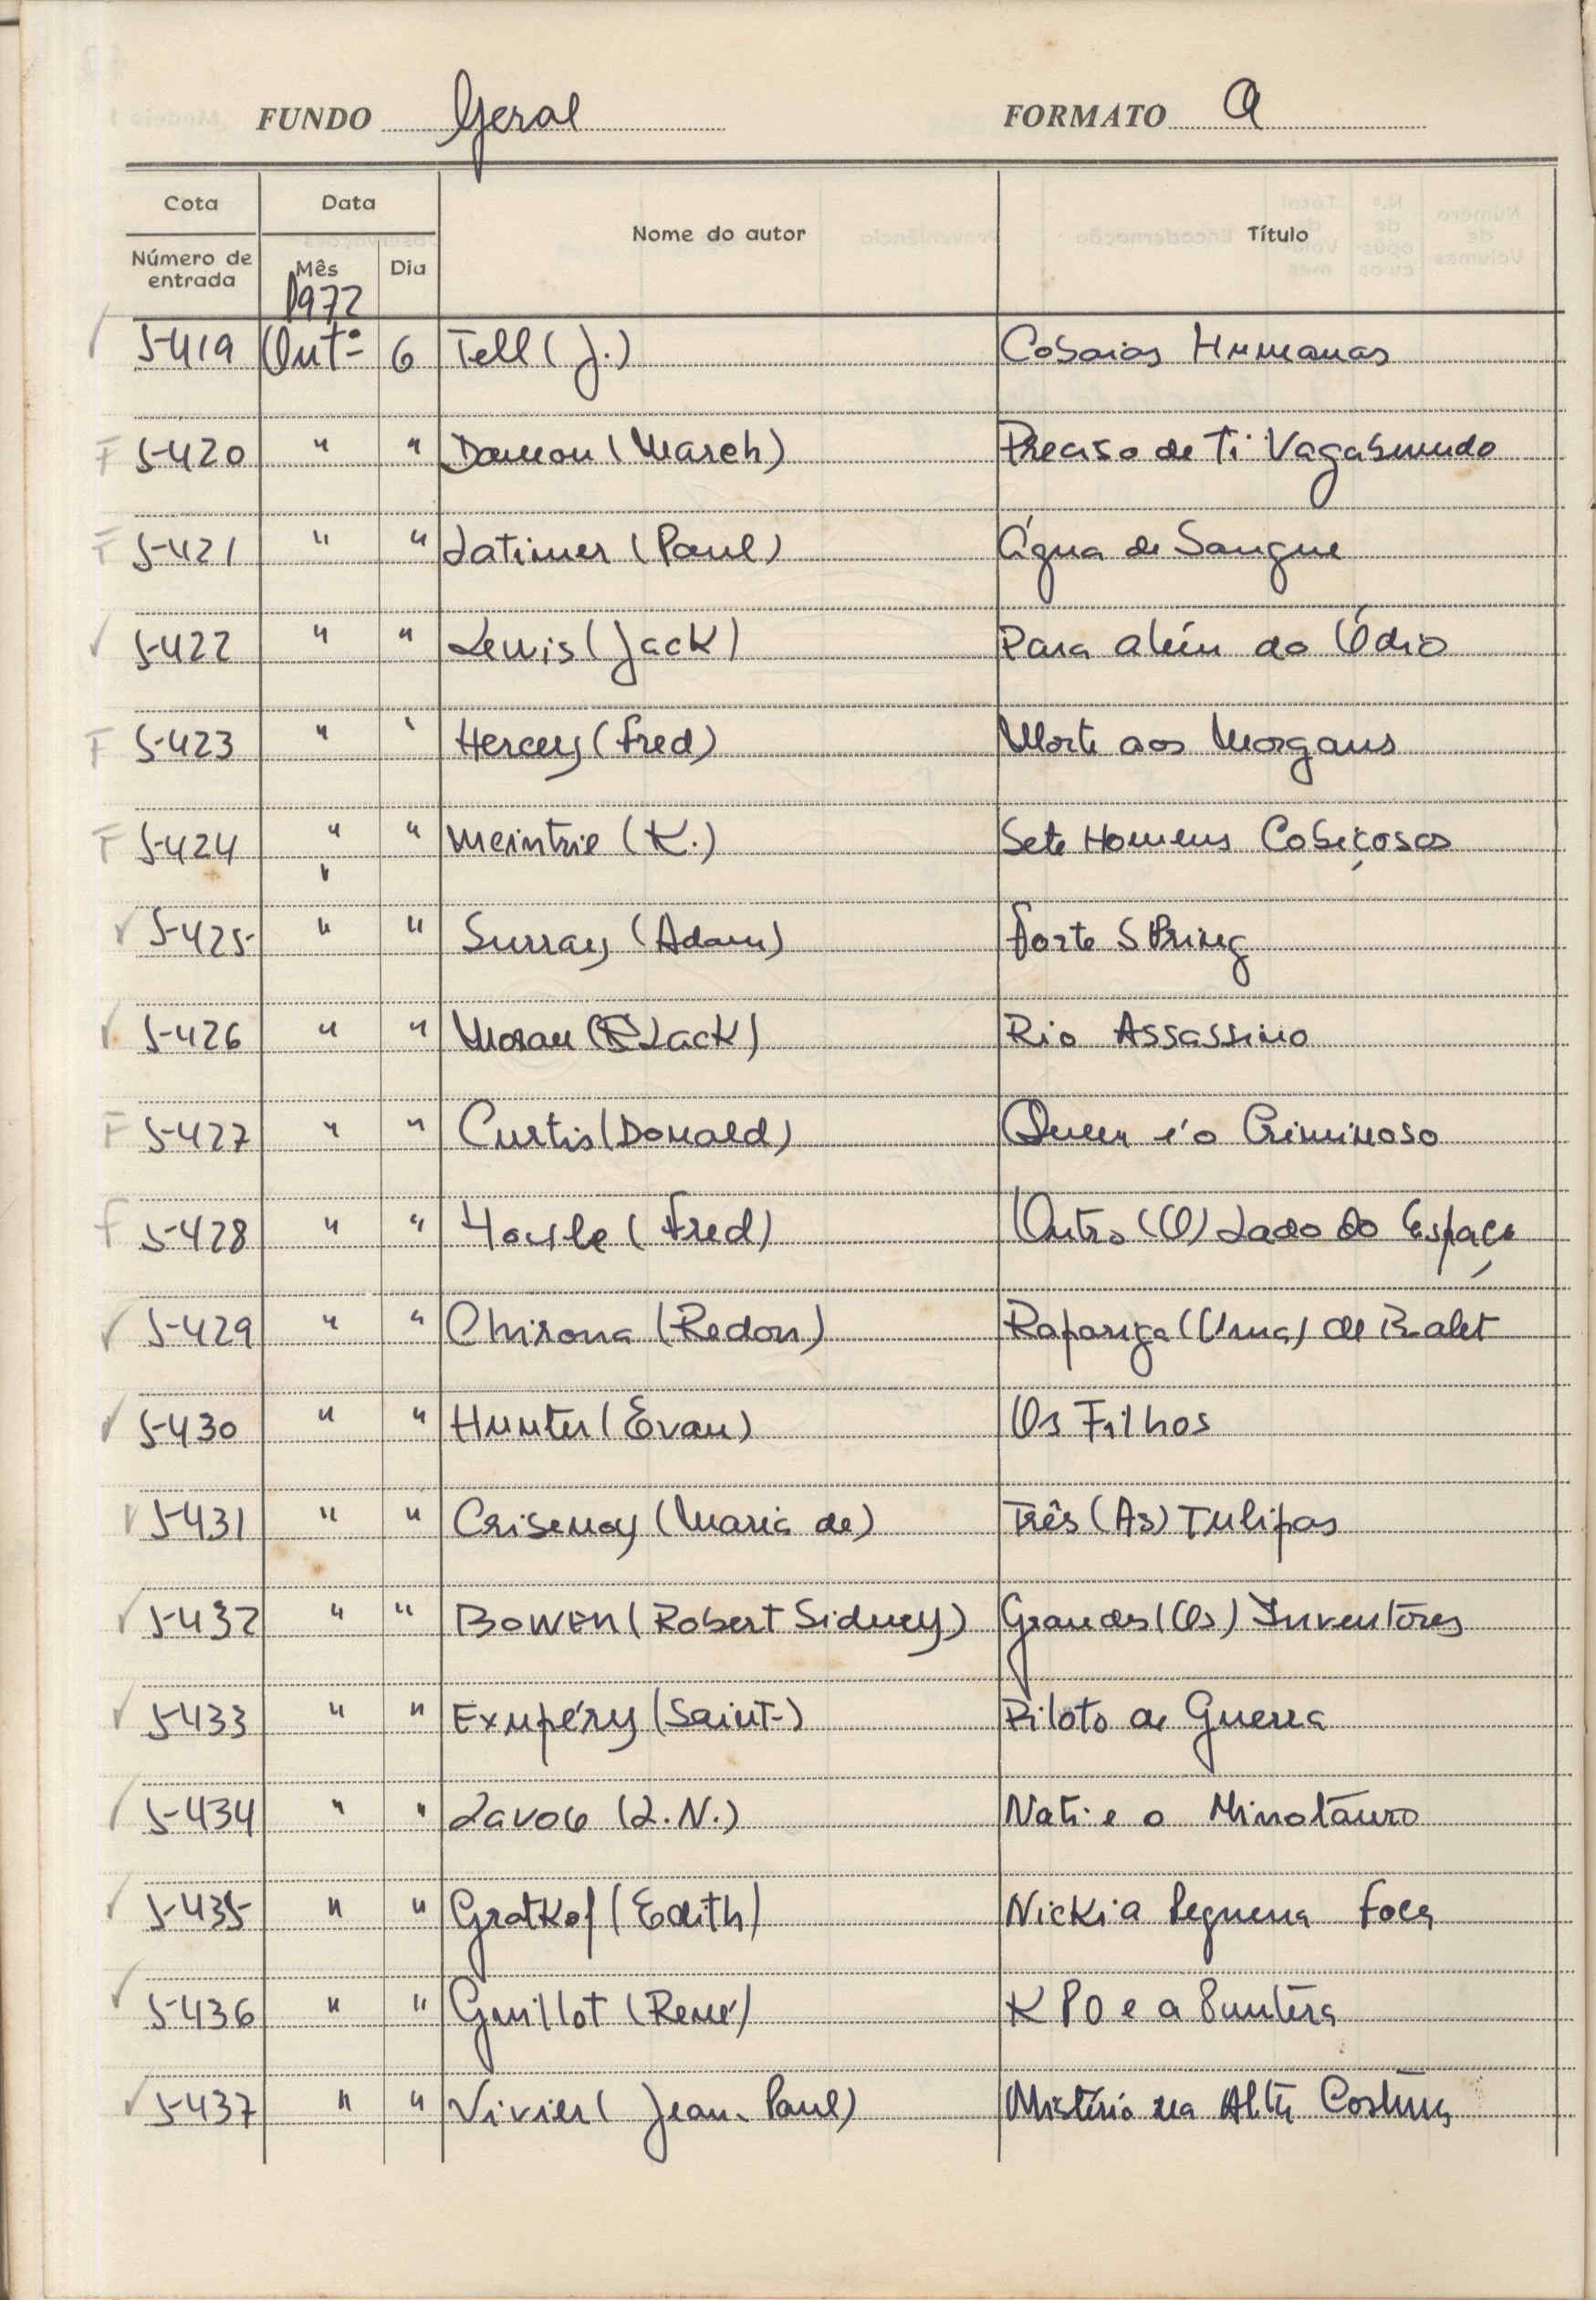 FUNDO Geral FORMATO A
Cota Data Nome do autor Título
Número de entrada Mês Dia
1972
5419 Outº 6 Tell (J.) Cobaias Humanas
F 5420 " " Damon (March) Preciso de Ti Vagabundo
F 5421 " " Latimer (Paul) Água de Sangue
5422 " " Lewis (Jack) Para além do Ódio
F 5423 " " Hercey (Fred) Morte aos Morgans
F 5424 " " Mcintrie (K.) Sete Homens Cobiçosos
5425 " " Surray (Adam) Forte Spring
5426 " " Moran (Black) Rio Assassino
F 5427 " " Curtis (Donald) Quem é o Criminoso
F 5428 " " Hoyle (Fred) Outro (O) Lado do Espaço
5429 " " Chirona (Redon) Rapariga (Uma) de Balet
5430 " " Hunter (Evan) Os Filhos
5431 " " Crisenoy (Maria de) Três (As) Tulipas
5432 " " Bowen (Robert Sidney) Grandes (Os) Inventores
5433 " " Exupéry (Saint-) Piloto de Guerra
5434 " " (L.N.) Nati e o Minotauro
5435 " " Gratkof (Edith) Nicki a Pequena Foca
5436 " " Guillot (René) KPO e a Pantera
5437 " " Vivier (Jean-Paul) Mistério na Alta Costura